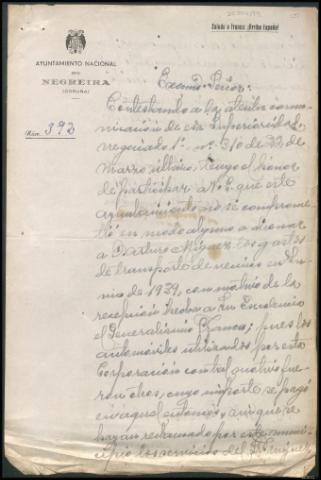 Saludo a Franco: ¡Arriba España!
AYUNTAMIENTO NACIONAL
DE
NEGREIRA
(CORUÑA)
Núm. 393
Excmo. Señor:
Contestando a la atenta comu-
nicación de esa Superioridad, Ne-
gociado 1º nº 310 de 22 de
marzo último, tengo el honor
de participar a V. E. que este
ayuntamiento no se comprome-
tió en modo alguno a abonar
a D. Arturo los gastos
de transporte de vecinos en Ju-
nio de 1939, con motivo de la
recepción hecha a Su Excelencia
el Generalísimo Franco; pues los
automóviles utilizados por esta
Corporación con tal motivo fue-
ron otros, cuyo importe se pagó
en aquel entonces, sin que se
hayan reclamado por este muni-
cipio los servicios del Sr.